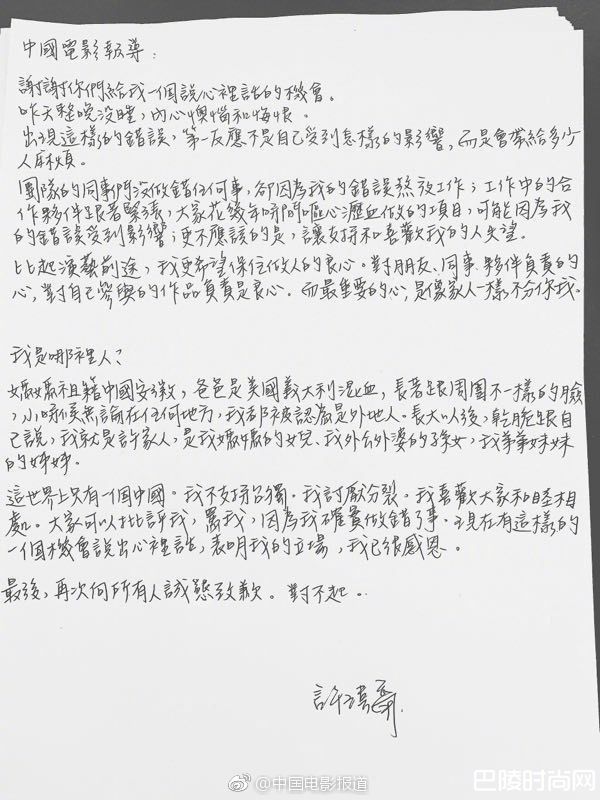 中國電影報導：
謝謝你們給我一個說心裡話的機會。
昨天整晚沒睡，內心懊惱和悔恨。
出現這樣的錯誤，第一反應不是自己受到怎樣的影響，而是會帶給多少
人麻煩。
團隊的同事們沒做錯任何事，卻因為我的錯誤熬夜工作；工作中的合
作夥伴跟著緊張，大家花幾年時間嘔心瀝血做的項目，可能因為我
的錯誤受到影響；更不應該的是，讓支持和喜歡我的人失望。
比起演藝前途，我更希望保住做人的良心。對朋友、同事、夥伴負責的
心，對自己參與的作品負責是良心。而最重要的心，是像家人一樣不分你我。
我是哪裡人？
媽媽祖籍中國安徽，爸爸是美國義大利混血，長著跟周圍不一樣的臉
，小時候無論在任何地方，我都被認為是外地人。長大以後，乾脆跟自
己說，我就是許家人，是我媽媽的女兒、我外公外婆的孫女，我弟弟妹妹
的姊姊。
這世界上只有一個中國。我不支持台獨。我討厭分裂。我喜歡大家和睦相
處。大家可以批評我，罵我，因為我不確實做錯了事。現在有這樣的
一個機會說出心裡話，表明我的立場，我已很感恩。
最後，再次向所有人誠懇致歉。對不起。
許瑋甯
@中国电影报道
巴陵时尚网